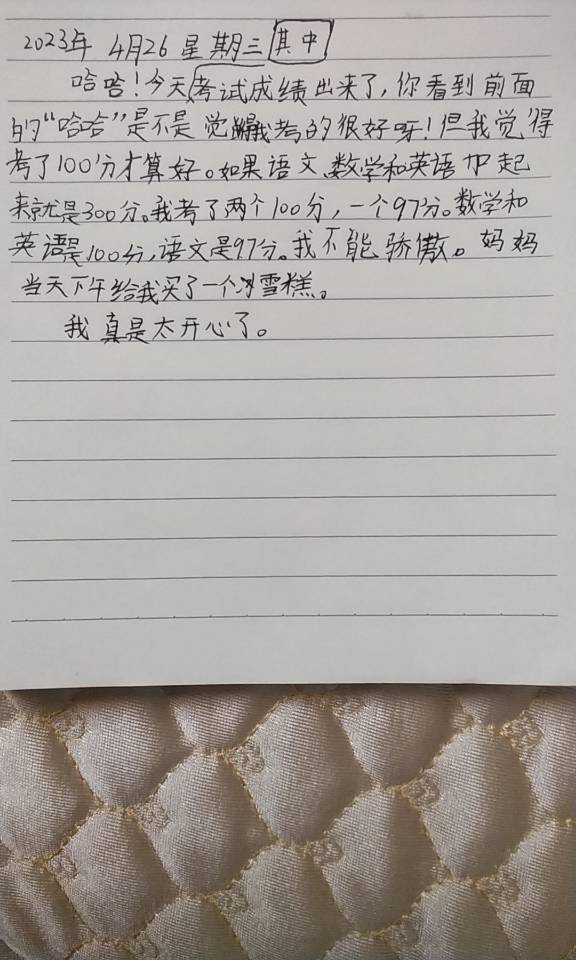 2023年 4月26 星期三 其中
哈哈！今天考试成绩出来了，你看到前面
的“哈哈”是不是觉得我考的很好呀！但我觉得
考了100分才算好。如果语文、数学和英语加起
来就是300分。我考了两个100分，一个97分。数学和
英语是100分，语文是97分。我不能骄傲。妈妈
当天下午给我买了一个冰雪糕。
我真是太开心了。